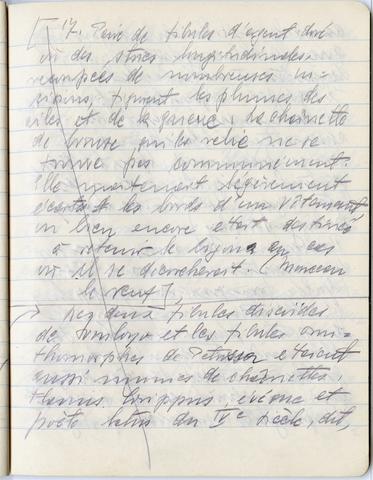 [ 17. Paire de fibules d'argent doré
où des stries longitudinales
recoupées de nombreuses in-
cisions, figurent les plumes des
ailes et de la queue; la chaînette
de bronze qui les relie ne se
trouve pas communément.
Elle maintenait légèrement
écartés les bords d'un vêtement
ou bien encore était destinée
à retenir le bijou en cas
où il se décrocherait. (
le veut]
→ Les deux fibules discoïdes
de et les fibules orni-
thomorphes de étaient
aussi munies de chaînettes.
Corippus, évêque et
poète latin du siècle, dit,